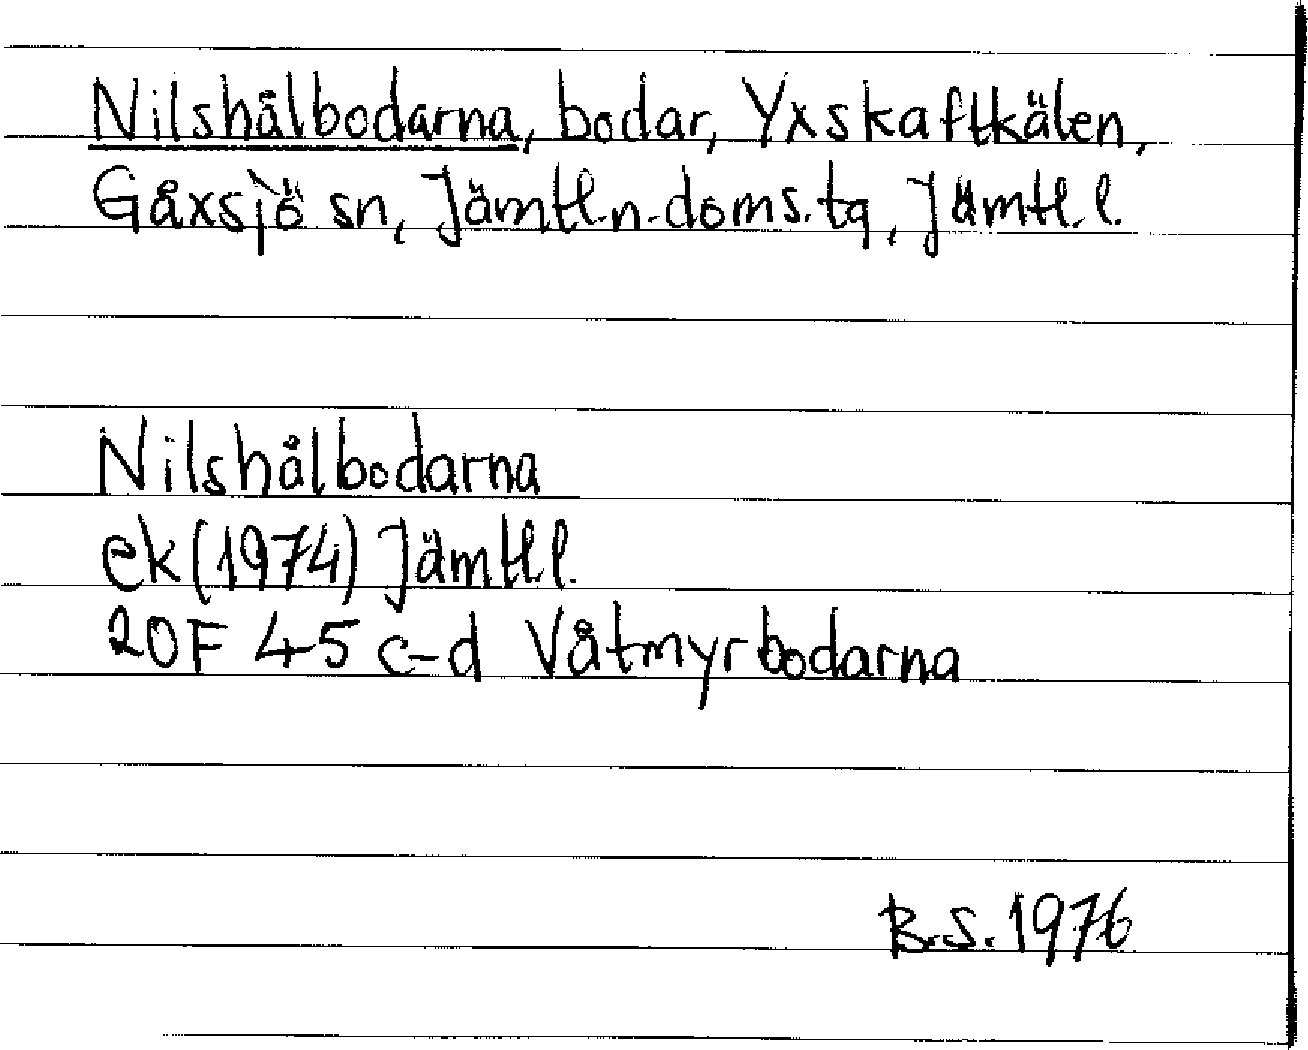 Nilshålbodarna, bodar, Yxskaftkälen,
Gåxsjö sn, Jämtl.n.doms.tg, Jämtl.l.
Nilshålbodarna
ek(1974) Jämtl.l.
20F 4-5 c-d Våtmyrbodarna
B.S. 1976